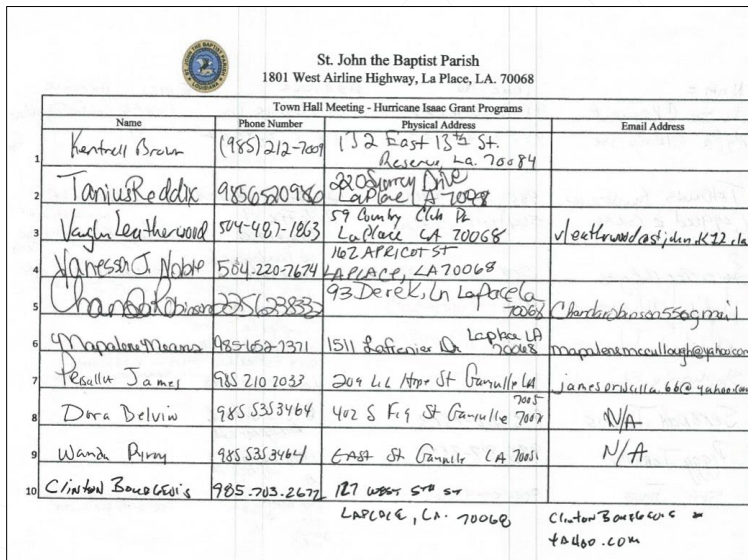 St. John the Baptist Parish
1801 West Airline Highway, La Place, LA. 70068
Town Hall Meeting - Hurricane Isaac Grant Programs
Name Phone Number Physical Address Email Address
1 Kentrell Brown (985)212-7009 132 East 13th St.
Reserve, La. 70084
2 Tanius Reddix 9856520986 220 Surrey Drive
LaPlace LA 70068
3 Vaughn Leatherwood 504-487-1863 59 Country Club Dr
LaPlace LA 70068 vleatherwood@stjohn.k12.la
4 Vanessa J. Noble 504.220-7674 162 APRICOT ST
LAPLACE, LA 70068
5 Chanda Robinson 2256238332 93 Derek Ln Laplace la
70068
6 Mapalene Means 985-652-2371 1511 Lafrenier Dr Laplace LA
70068 mapalenemccullough@yahoo.com
7 James 985 210 2033 209 Hope St
8 Dora Belvin 985 5353464 402 S Fig St N/A
9 Wanda 985 5353464 EAST St LA 70051 N/A
10 Clinton Bourgeois 985.703.2672 127 WEST 5TH ST
LAPLACE, LA. 70068 Clinton Bourgeois
YAHOO.COM